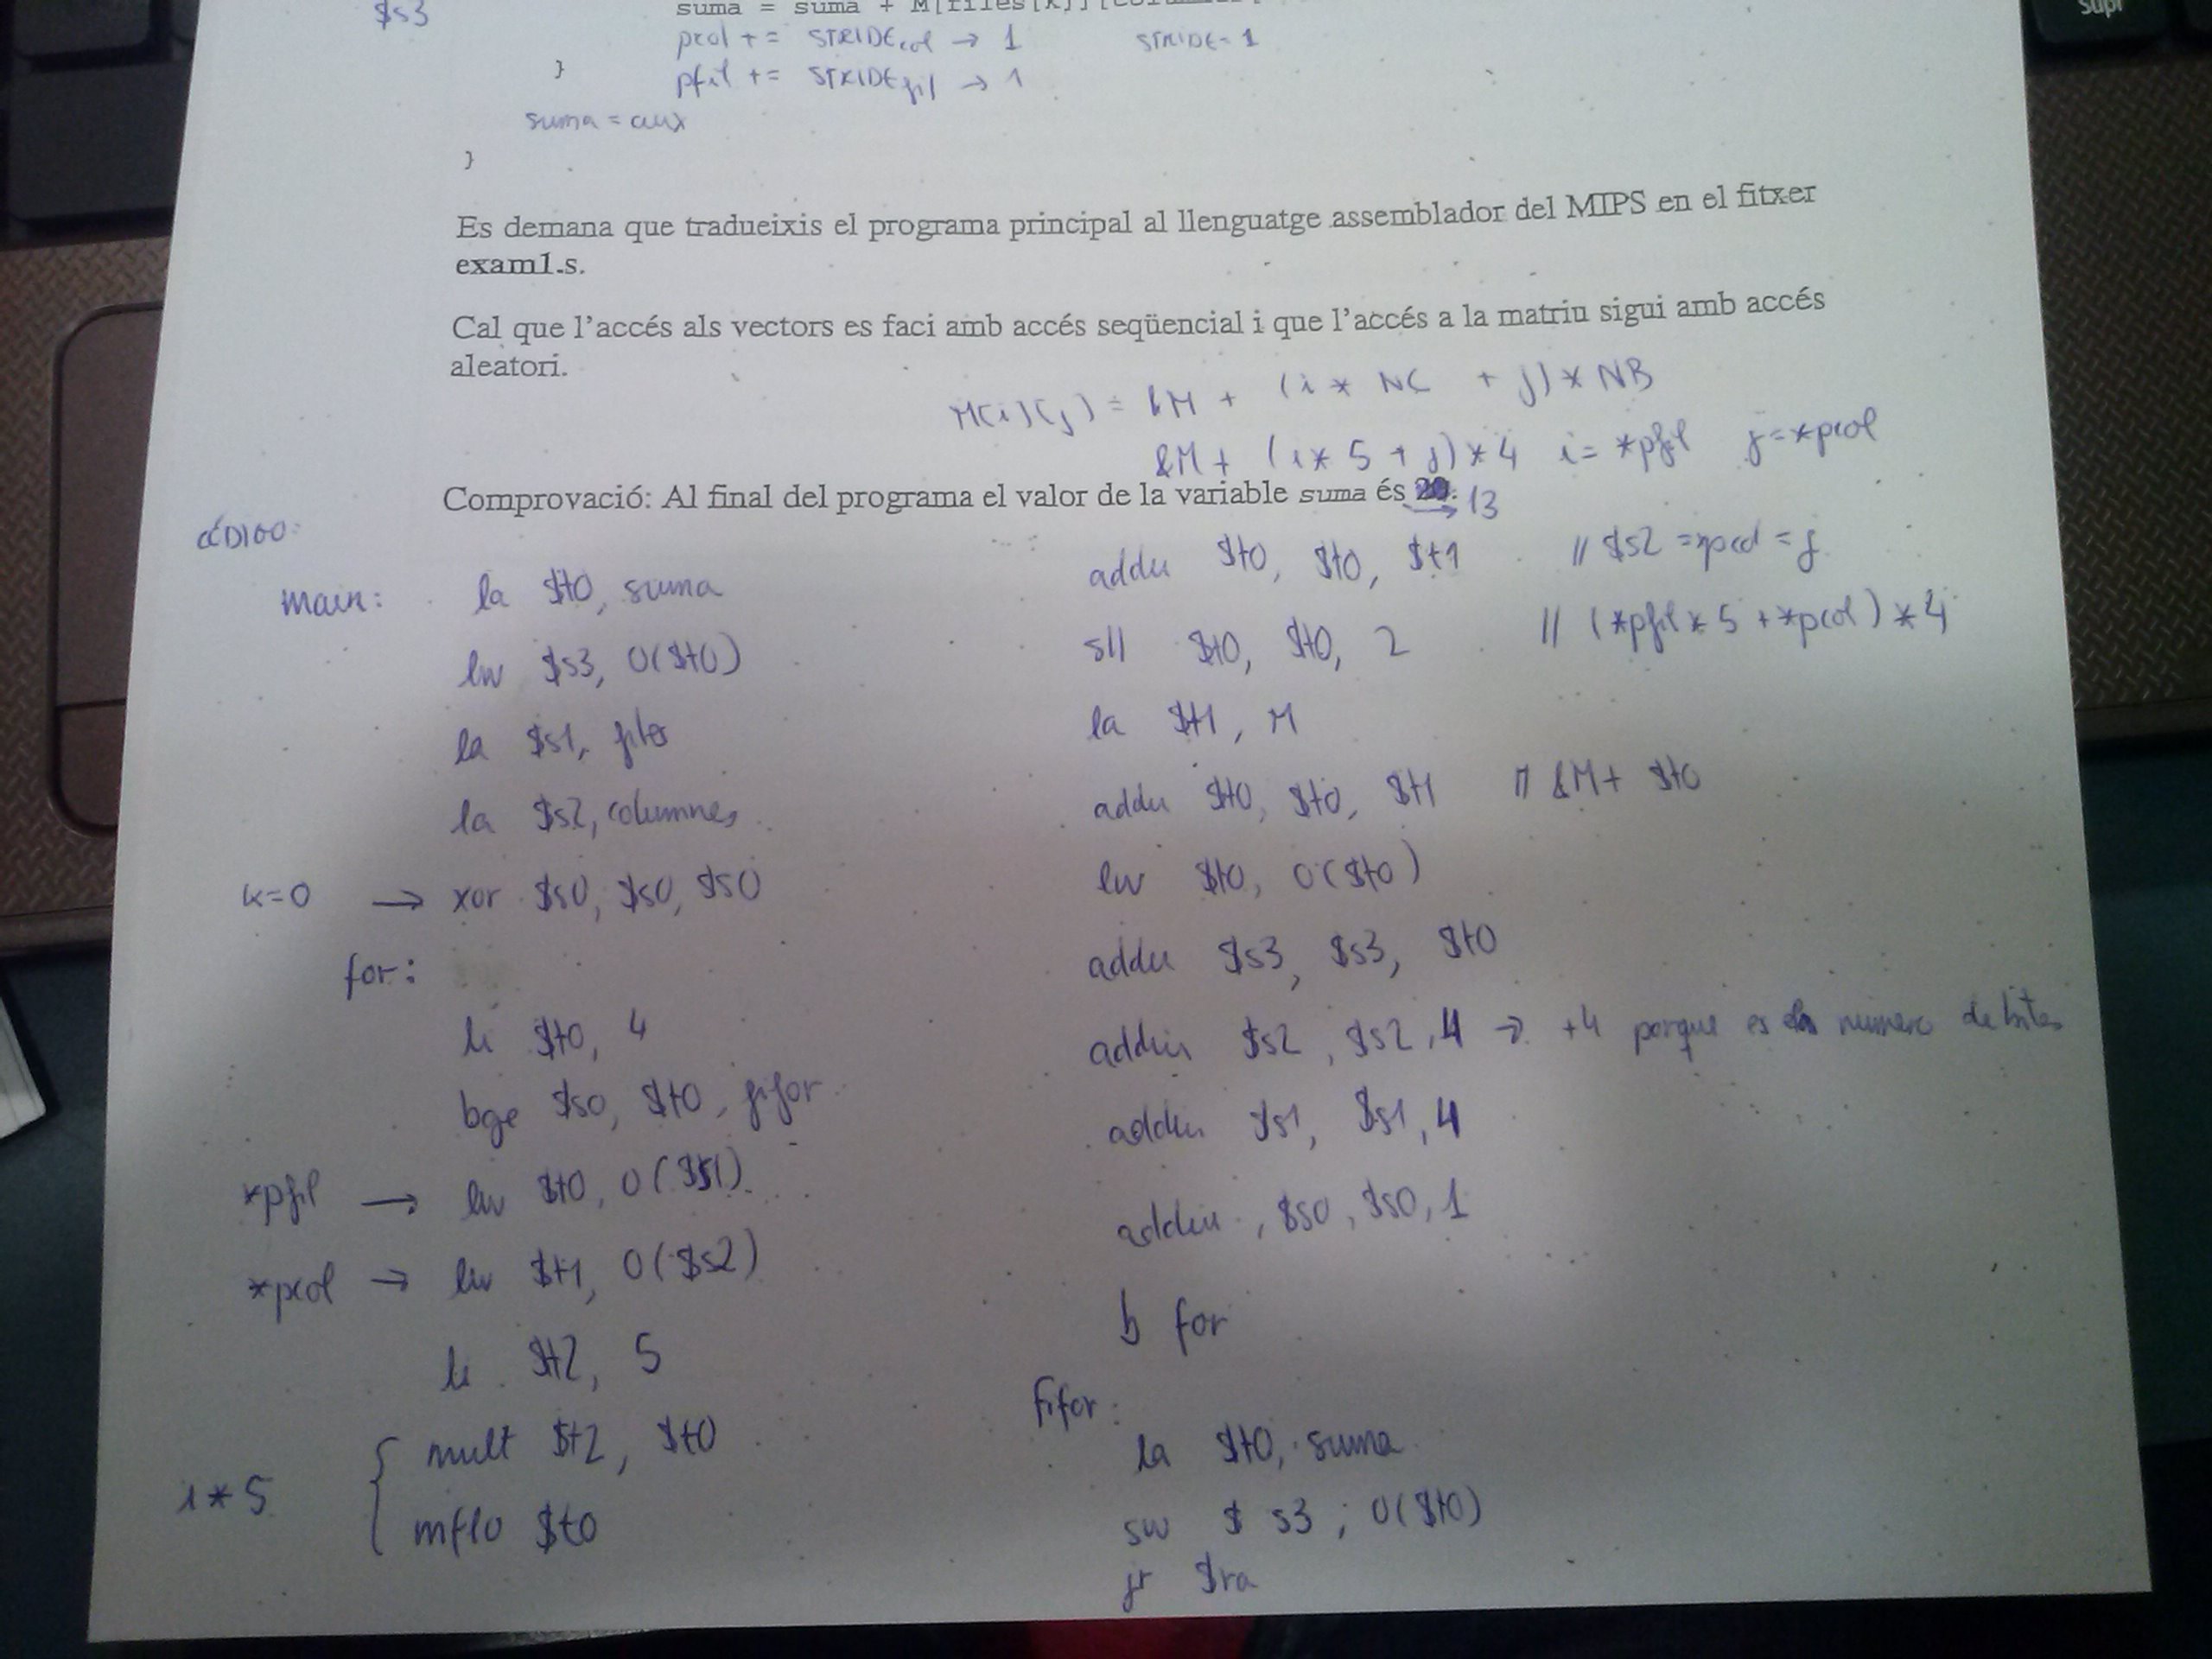 $s3
suma = suma + M[files[k]]
pcol += STRIDEcol → 1 STRIDE=1
} pfil += STRIDEfil → 1
suma = aux
}
Es demana que tradueixis el programa principal al llenguatge assemblador del MIPS en el fitxer
exam1.s.
Cal que l'accés als vectors es faci amb accés seqüencial i que l'accés a la matriu sigui amb accés
aleatori.
M(i)(j) = &M + (i * NC + j) * NB
&M + (i * 5 + j) * 4 i = *pfil j = *pcol
Comprovació: Al final del programa el valor de la variable suma és 20. → 13
CÓDIGO:
main: la $t0, suma
lw $s3, 0($t0)
la $s1, files
la $s2, columnes
k=0 → xor $s0, $s0, $s0
for:
li $t0, 4
bge $s0, $t0, fifor
*pfil → lw $t0, 0($s1)
*pcol → lw $t1, 0($s2)
li $t2, 5
i * 5 { mult $t2, $t0
mflo $t0
addu $t0, $t0, $t1 // $s2 = pcol = j
sll $t0, $t0, 2 // (*pfil * 5 + *pcol) * 4
la $t1, M
addu $t0, $t0, $t1 // &M + $t0
lw $t0, 0($t0)
addu $s3, $s3, $t0
addiu $s2, $s2, 4 → +4 porque es numero de bites
addiu $s1, $s1, 4
addiu, $s0, $s0, 1
b for
fifor:
la $t0, suma
sw $s3; 0($t0)
jr $ra
supr